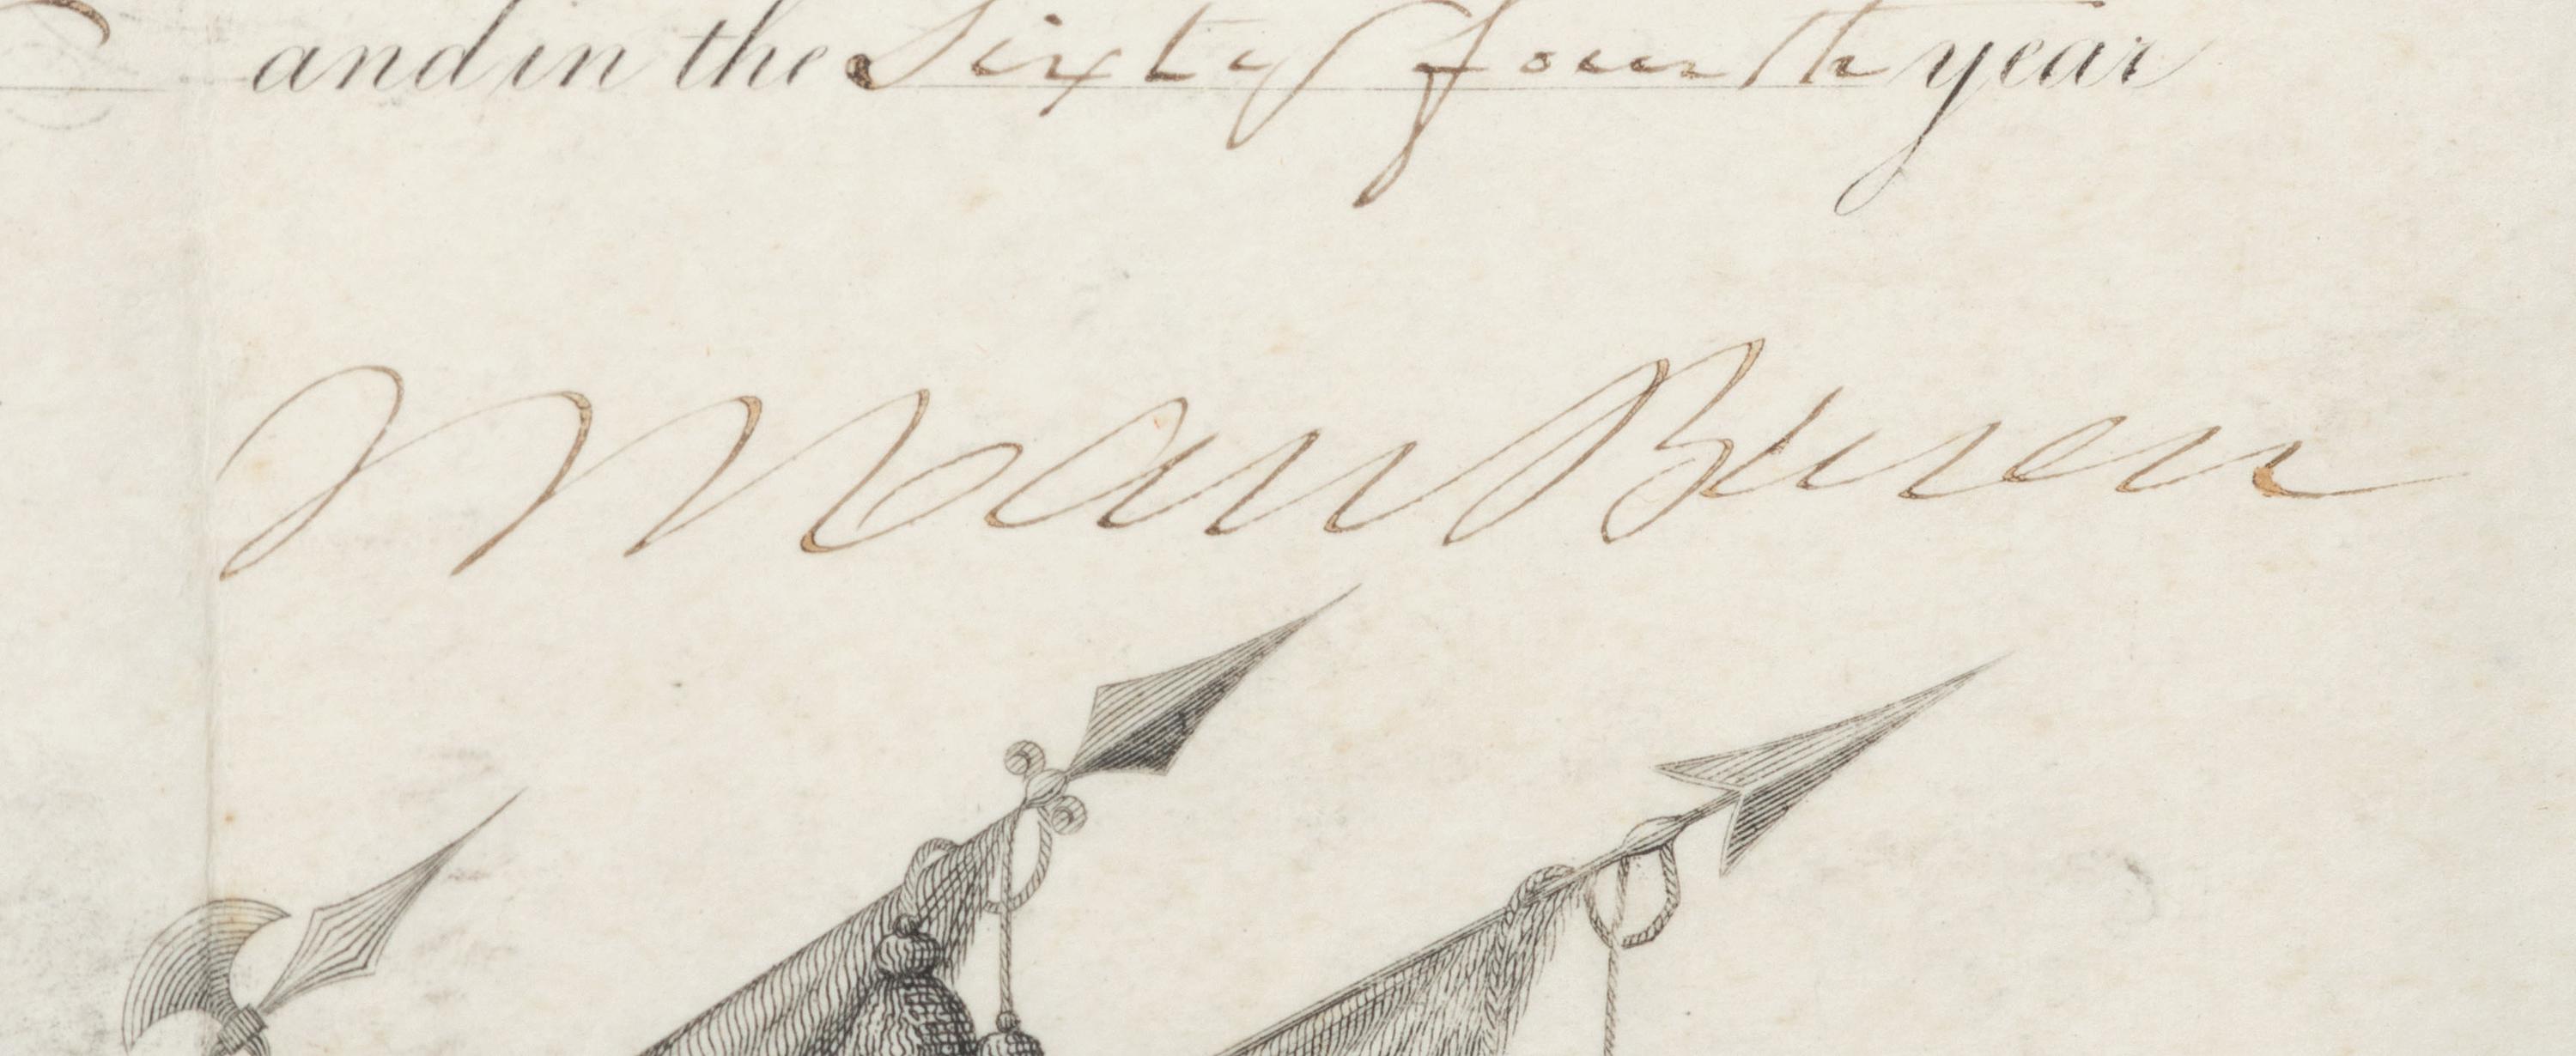 and in the Sixty fourth year
M Van Buren